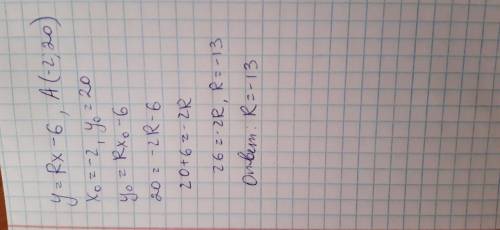 y = Rx - 6 , A (-2; 20)
x₀ = -2 , y₀ = 20
y₀ = Rx₀ - 6
20 = -2R - 6
20 + 6 = -2R
26 = -2R, R = -13
Ответ: R = -13